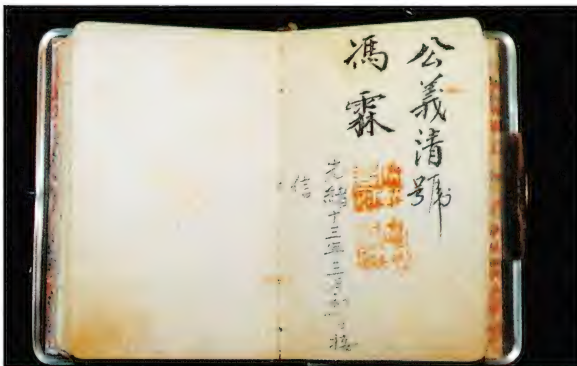 公義清號
馮霖
光緒十三年三月初
接
信